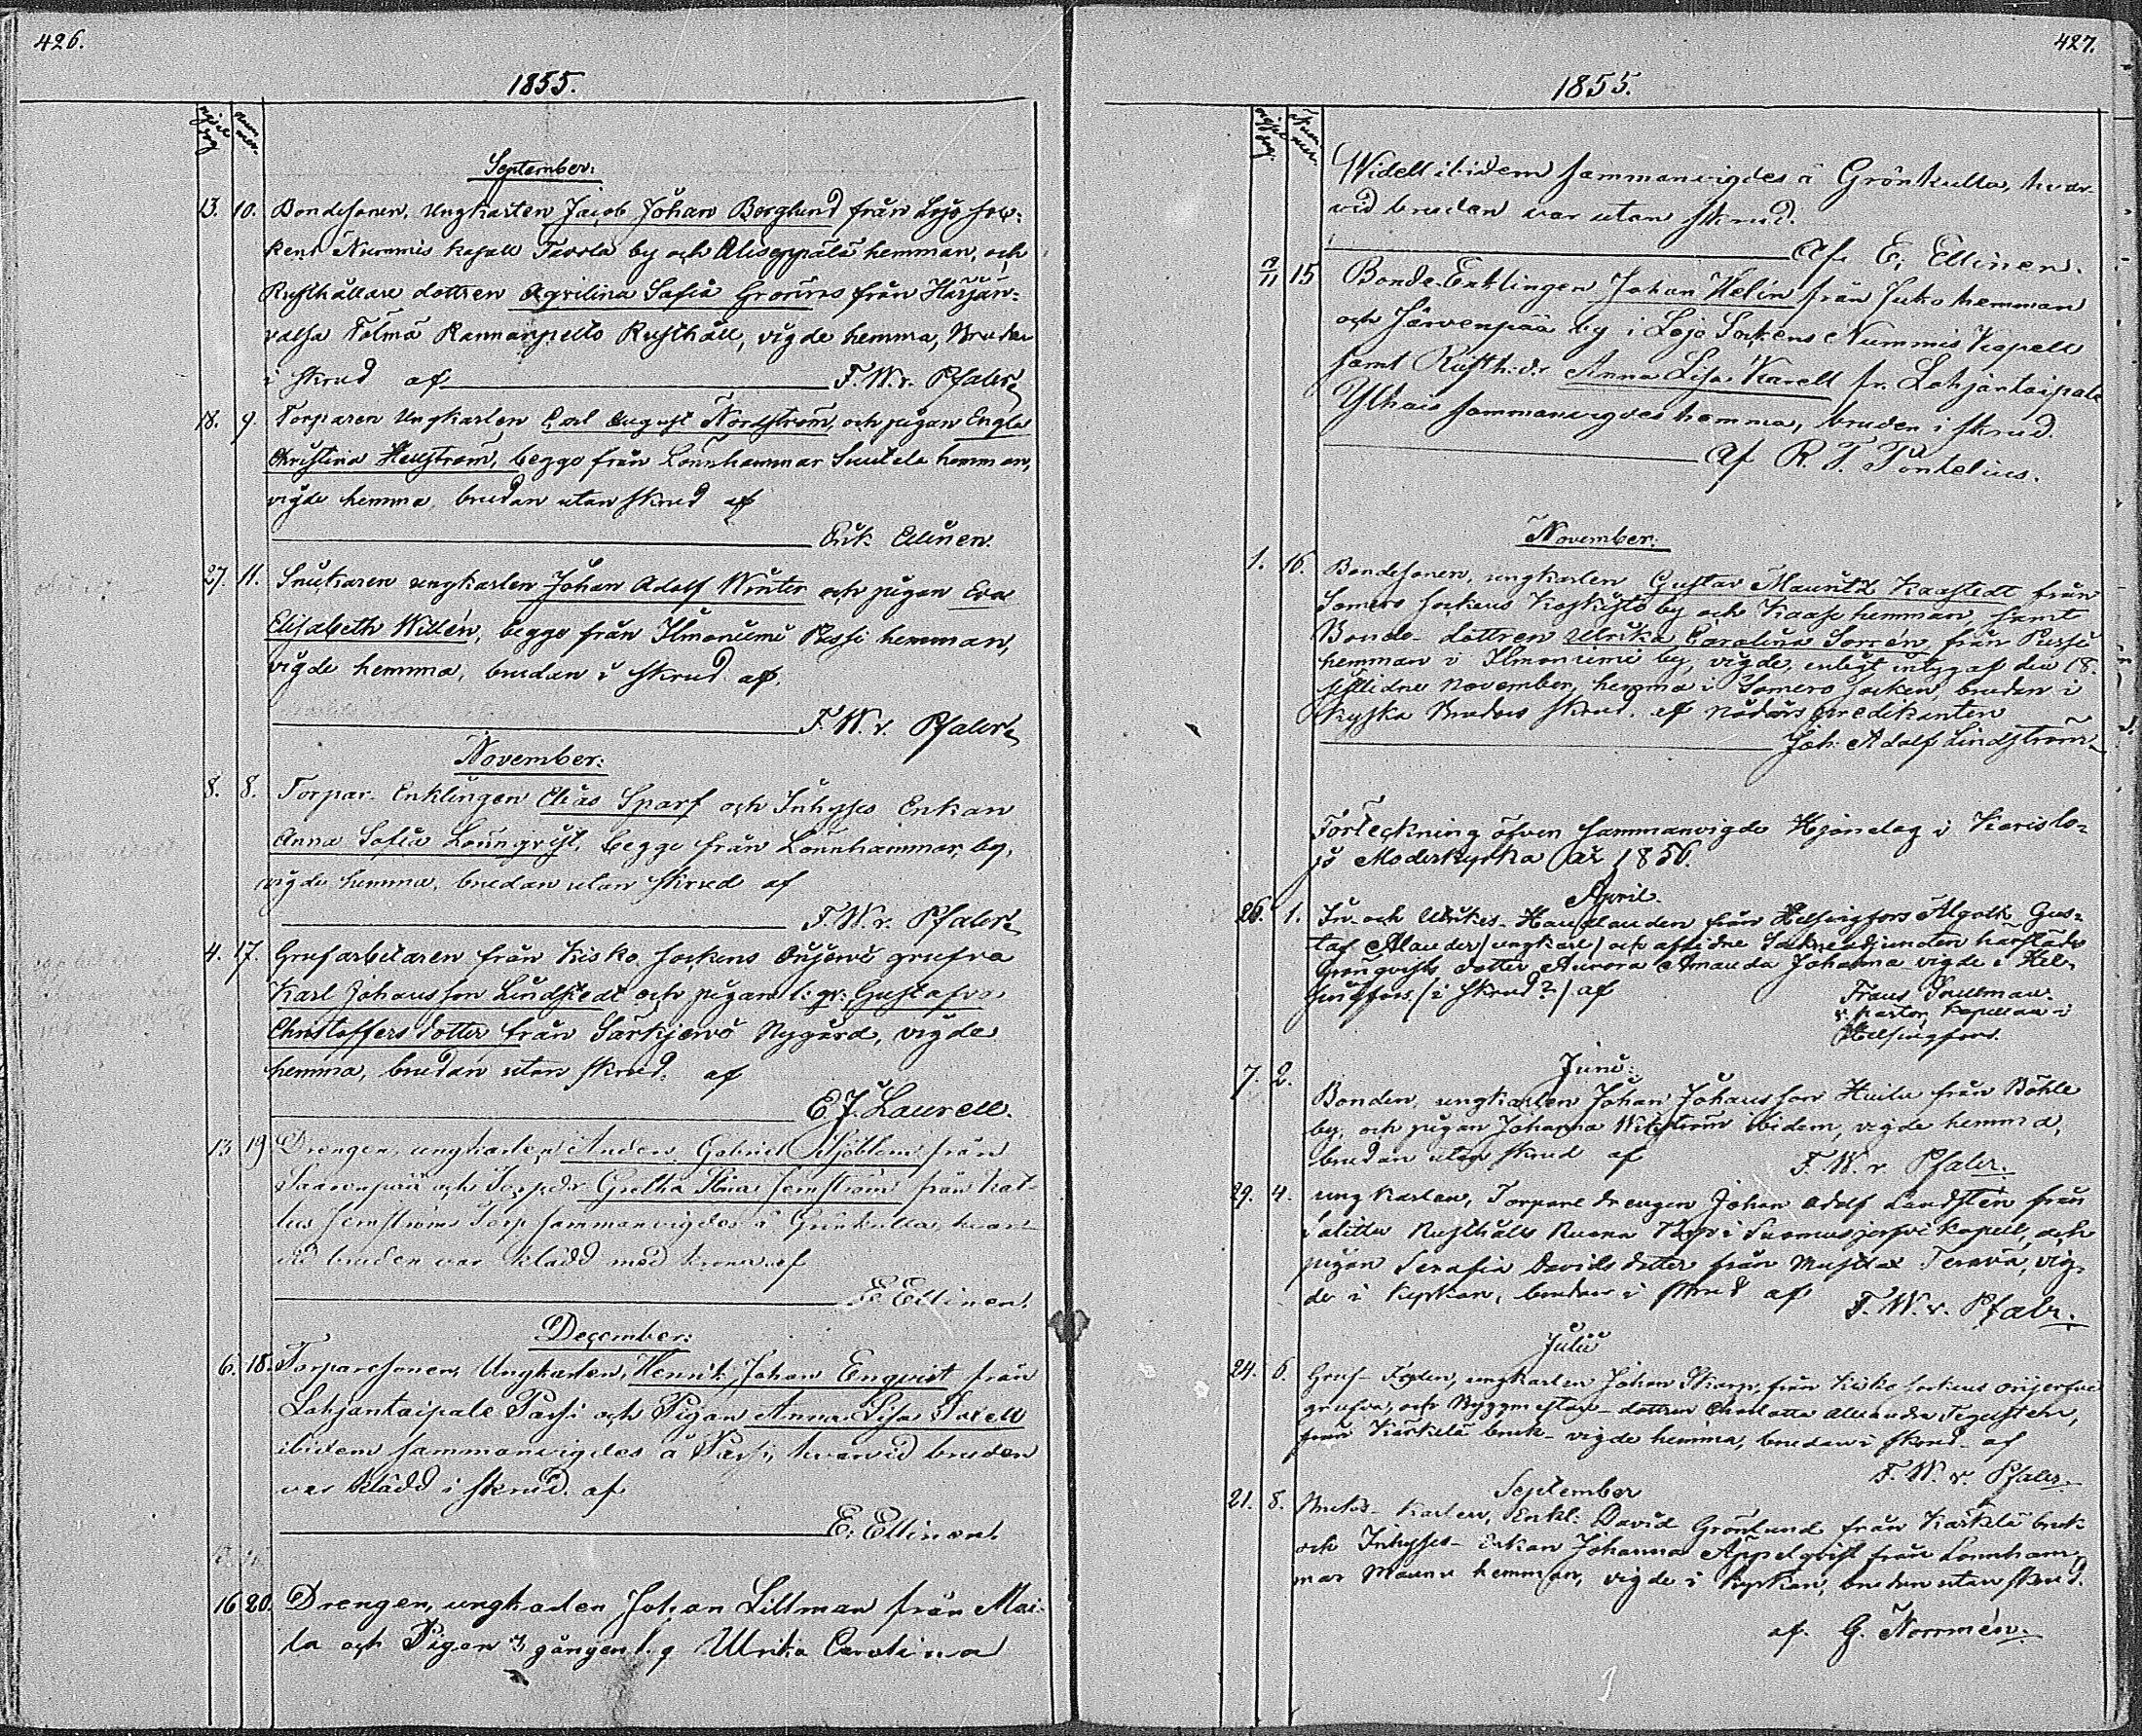 426.
1855.
vigsel dag
num mer.
September:
13. 10. Bondesonen, Ungkarlen Jacob Johan Borglund från Lojo Soc-
kens Nummis Kapell Tavola by och Aliseppälä hemman, och
Rusthållare dottren Agrilina Sofia Grönroos från Härjän-
valsa Tötmä Rannanpelto Rusthåll, vigde hemma, Bruden
i skrud af F. W. v. Pfaler
18. 9. Torparen Ungkarlen Carl August Nordström och pigan Engla
Christina Hellström, begge från Lönnhammar Suutela hemman,
vigde hemma, brudan utan skrud af
Erik Ellinen.
27. 11. Snickaren ungkarlen Johan Adolf Winter och pigan Eva
Elisabeth Willén, begge från Ilmoniemi Pessi hemman,
vigde hemma, brudan i skrud af.
F. W. v. Pfaler
November:
8. 8. Torpar-Enklingen Elias Sparf och Inhyses Enkan
Anna Sofia Lönnqvist, begge från Lönnhammar by,
vigde hemma, brudan utan skrud af
F. W. v. Pfaler
4. 17. Grufarbetaren från Kisko Sockens Orijervi grufva
Karl Johansson Lindstedt och pigan l: gr: Gustafva
Christoffersdotter från Särkjervi Nygård, vigde
hemma, brudan utan skrud. af
E J. Laurell.
13 19 Drengen, ungkarlen Anders Gabriel Sjöblom från
Saarenpää och Torpdr Gretha Stina Jernström från Kat-
lus Jernströms Torp sammanvigdes å Grönkulla, hvar-
vid bruden var klädd med krona af
E. Ellinen.
December:
6. 18. Torparesonen, Ungkarlen, Henrik Johan Enqvist från
Lohjantaipale Parsi och Pigan Anna Lisa Tarell
ibidem sammanvigdes å Parsi, hvarvid bruden
var klädd i skrud. af
E. Ellinen.
16 20. Drengen, ungkarlen Johan Lillman från Mai-
la och Pigan 3 gången l. g Ulrika Carolina
427.
1855.
vigsel dag.
Num mer.
Widell ibidem sammanvigdes å Grönkulla, hvar-
vid bruden var utan skrud.
Af. E. Ellinen.
11 15 Bonde-Enklingen Johan Helin från Juko hemman
och Järvenpää by i Lojo Sockens Nummis Kapell
samt Rusth: dr Anna Lisa Karell fr. Lohjantaipale
Ylhais sammanvigdes hemma, bruden i skrud.
Af R. T. Ponkelius.
November:
1. 16. Bondesonen, ungkarlen Gustav Mauritz Kaastedt från
Somero Sockens Koskisto by och Kaase hemman, samt
Bonde-dottren Ulrika Carolina Sorrén från Pessi
hemman i Ilmoniemi by, vigde, enligt intyg af den 18.
sistlidne November, hemma i Somero Socken, bruden i
kyska Brudars skrud. af nådårspredikanten
Joh. Adolf Lindström
Förteckning öfver sammanvigde Hjonelag i Karislo-
jo Moderkyrka år 1856.
April.
26. 1. från Helsingfors Gus-
taf Alander / ungkarl / och aflidne
Grönqvists dotter Aurora Amanda Johanna vigde i Hel-
singfors. / i skrud? / af Frans Snellman.
v. Pastor, Kapellan i
Helsingfors.
Juni:
7. 2. Bonden, ungkarlen Johan Johansson Huilu från Böhle
by, och pigan Johanna Wikström ibidem, vigde hemma,
brudan utan skrud af F. W. v Pfaler.
29. 4. Ungkarlen, Torparedrengen Johan Adolf Landstén från
Salittu Rusthålls Torp i Suomusjerfvi Kapell, och
pigan Serafia Davidsdotter från Mustlax Terävä, vig-
de i kyrkan, brudan i skrud af F. W. v. Pfaler.
Julii
24. 6. Gruf-Fogden, ungkarlen Johan Skarp, från Kisko Sockens Orijerfvi
grufva, och Byggmästare-dottren Charlotta Alexandra Tegelsten,
från Kärkelä bruk, vigde hemma, brudan i skrud. af
F. W. v Pfaler
September
21. 8. Bruks-Karlen, Enkl: David Grönlund från Kärkelä bruk
och Inhyses-Enkan Johanna Äppelqvist från Lönnham-
mar Maunu hemman, vigde i kyrkan, brudan utan skrud.
af. G. Norrmén.